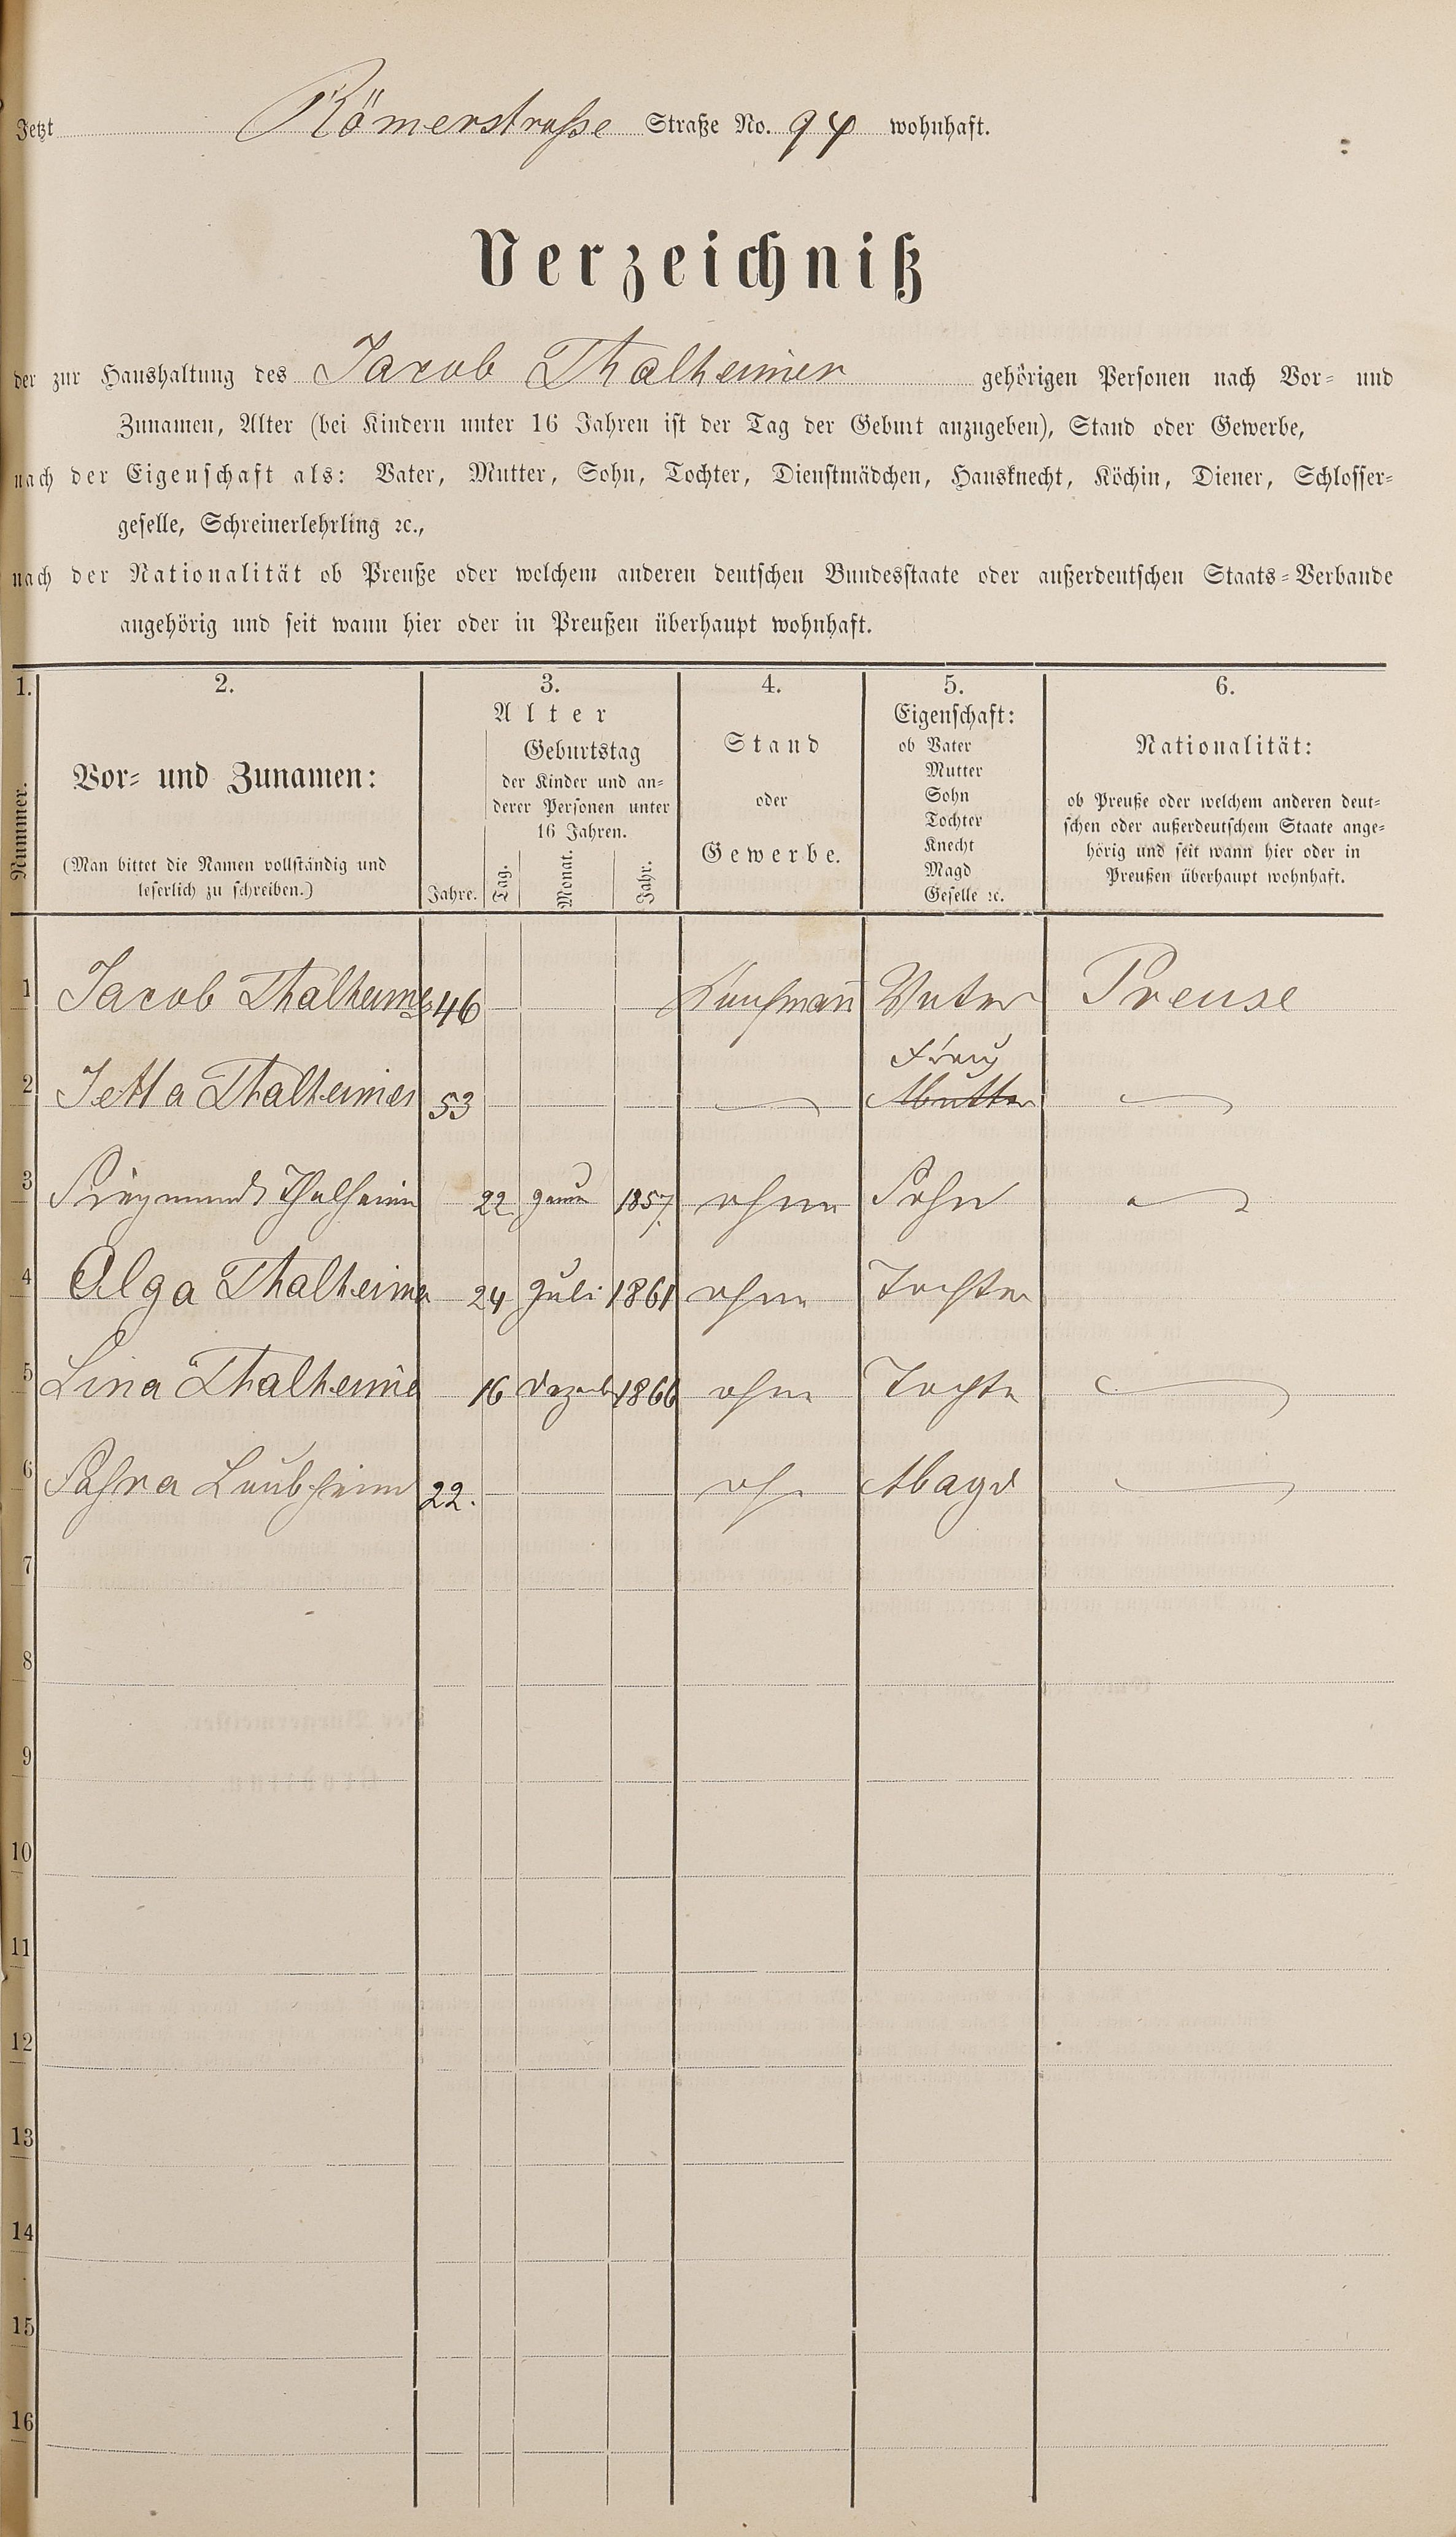 Jetzt Römerstraße Straße No. 94 wohnhaft.
Verzeichniß
der zur Haushaltung des Jacob Thalheimer gehörigen Personen nach Vor- und
Zunamen, Alter (bei Kindern unter 16 Jahren ist der Tag der Geburt anzugeben), Stand oder Gewerbe,
nach der Eigenschaft als: Vater, Mutter, Sohn, Tochter, Dienstmädchen, Hausknecht, Köchin, Diener, Schlosser-
geselle, Schreinerlehrling ꝛc.,
nach der Nationalität ob Preuße oder welchem anderen deutschen Bundesstaate oder außerdeutschen Staats-Verbande
angehörig und seit wann hier oder in Preußen überhaupt wohnhaft.
1. 2. 3. 4. 5. 6.
Nummer.
Vor- und Zunamen:
(Man bittet die Namen vollständig und
leserlich zu schreiben.)
Alter
Jahre.
Geburtstag
der Kinder und an-
derer Personen unter
16 Jahren.
Tag. Monat. Jahr.
Stand
oder
Gewerbe.
Eigenschaft:
ob Vater
Mutter
Sohn
Tochter
Knecht
Magd
Geselle ꝛc.
Nationalität:
ob Preuße oder welchem anderen deut-
schen oder außerdeutschem Staate ange-
hörig und seit wann hier oder in
Preußen überhaupt wohnhaft.
1 Jacob Thalheimer 46 Kaufmann Vater Preuse
Frau
2 Jetta Thalheimer 53 Mutter
3 Siegmund Thalheimer 22 1857 ohne Sohn
4 Olga Thalheimer 24 Juli 1861 ohne Tochter
5 Lina Thalheimer 16 Dezemb 1866 ohne Tochter
6 Sahra Laubheim 22. ohne Magd
7
8
9
10
11
12
13
14
15
16